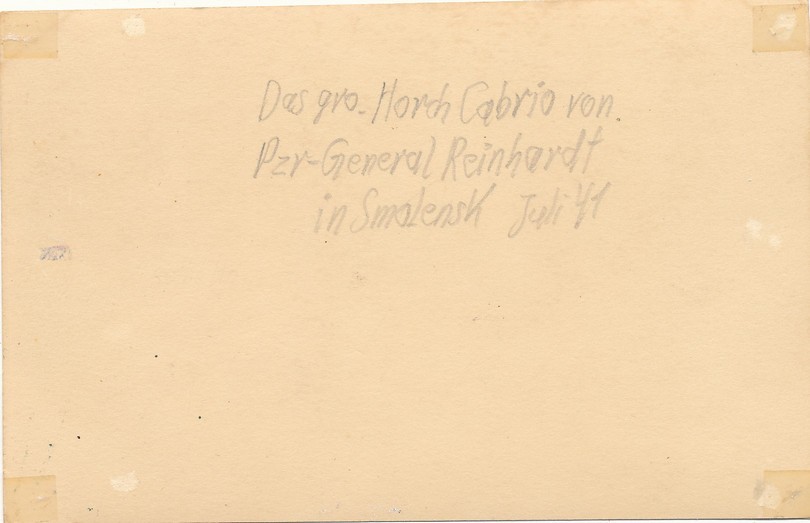 Das gro. Horch Cabrio von
Pzr-General Reinhardt
in Smolensk Juli '41